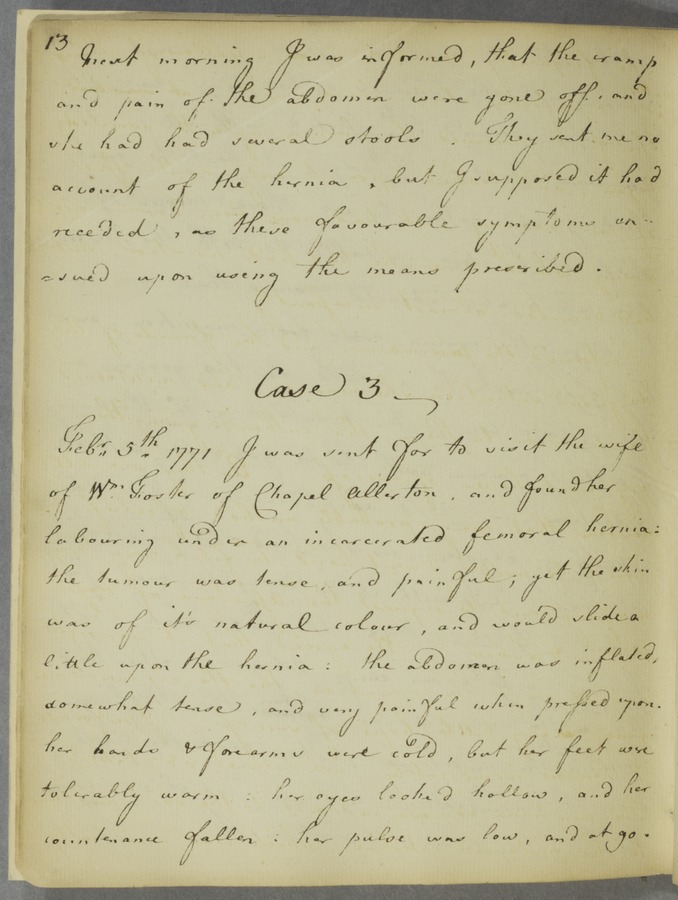 13
Next morning I was informed, that the cramp
and pain of the abdomen were gone off, and
she had had several stools. They sent me no
account of the hernia, but I supposed it had
receeded, as these favourable symptoms en=
=sued upon using the means prescribed.
Case 3
Febr. 5th 1771 I was sent for to visit the wife
of Wm. Foster of Chapel Allerton, and found her
labouring under an incarcerated femoral hernia:
the tumour was tense, and painful; yet the skin
was of it's natural colour, and would slide a
little upon the hernia: the abdomen was inflated,
somewhat tense, and very painful when pressed upon.
her hands & forearms were cold, but her feet were
tolerably warm: her eyes looked hollow, and her
countenance fallen: her pulse was low, and at 90.